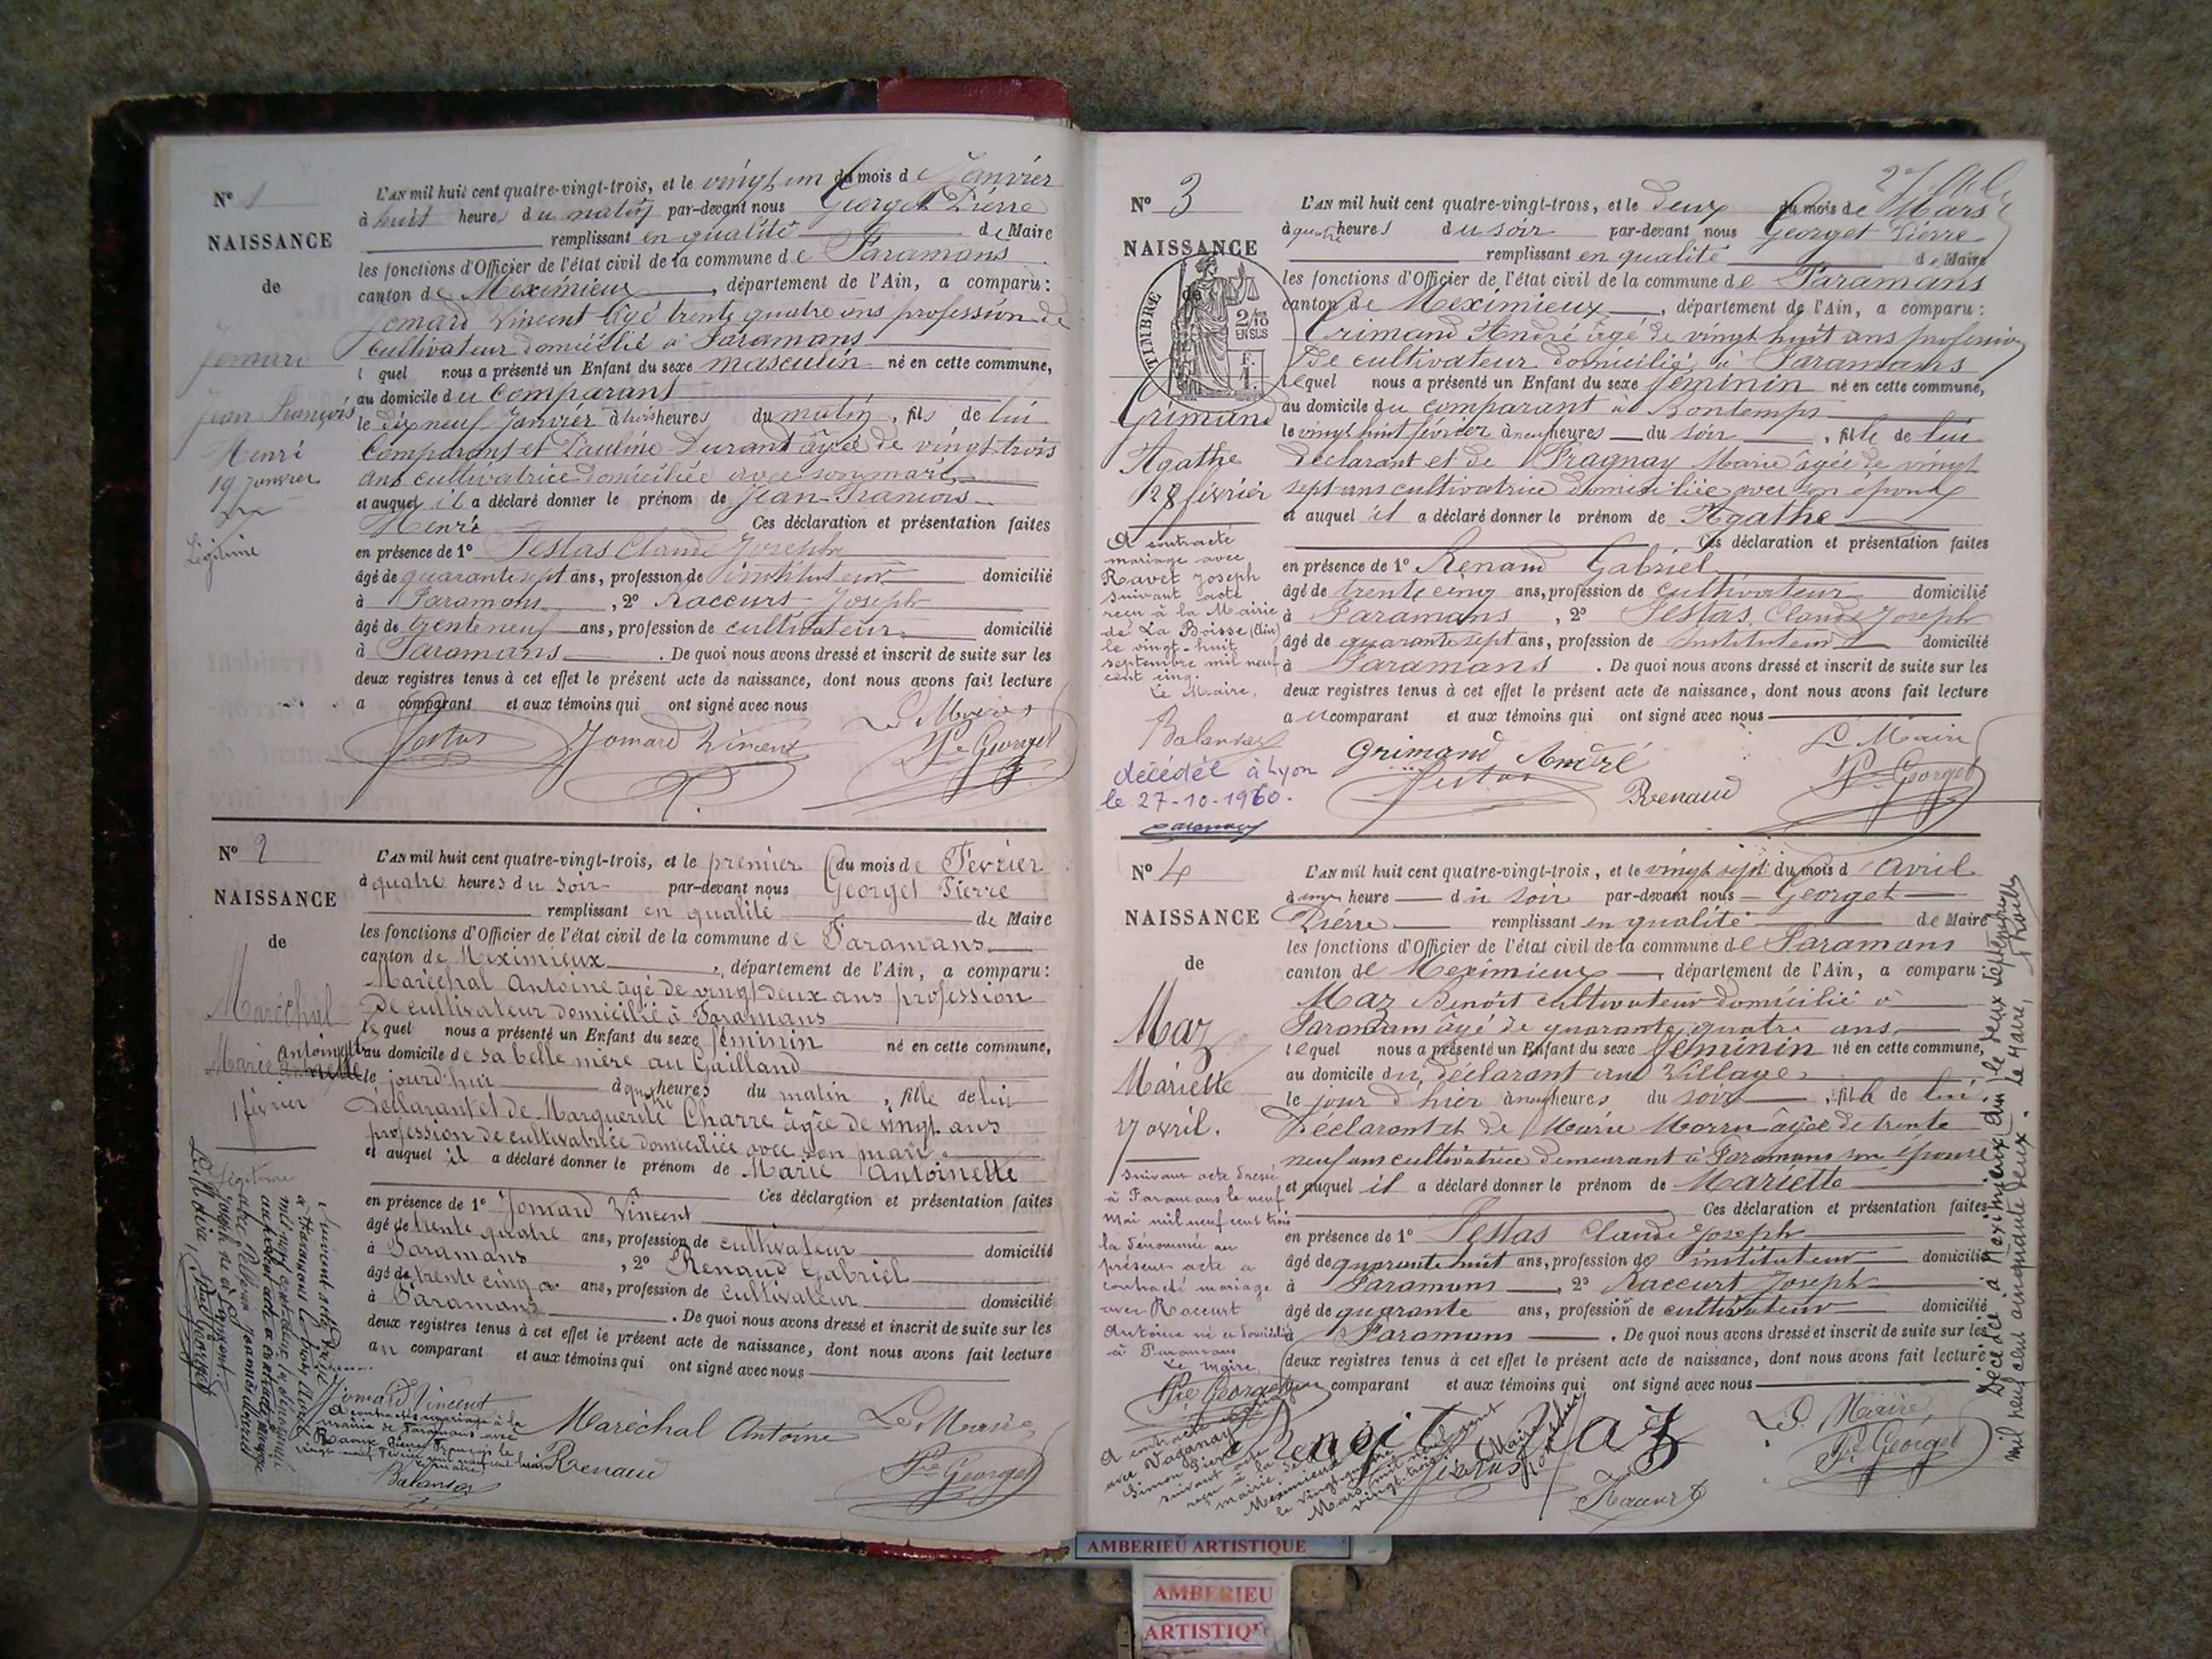 Nº 1
NAISSANCE
de
Jomard
Jean François
Henri
19 Janvier
Légitime
L'AN mil huit cent quatre-vingt-trois, et le vingt un du mois de Janvier
à huit heures du matin par-devant nous Georget Pierre
remplissant en qualité de Maire
les fonctions d'Officier de l'état civil de la commune de Faramans
canton de Meximieux, département de l'Ain, a comparu:
Jomard Vincent âgé trente quatre ans profession de
cultivateur domicilié à Faramans
lequel nous a présenté un Enfant du sexe masculin né en cette commune,
au domicile du comparant
le dix neuf Janvier à trois heures du matin, fils de lui
comparant et Pauline Durant âgée de vingt trois
ans cultivatrice domiciliée avec son mari
et auquel il a déclaré donner le prénom de Jean-François
Henri Ces déclaration et présentation faites
en présence de 1º Festas Claude Joseph
âgé de quarante sept ans, profession de instituteur domicilié
à Faramans, 2º Raccurt Joseph
âgé de trente neuf ans, profession de cultivateur domicilié
à Faramans. De quoi nous avons dressé et inscrit de suite sur les
deux registres tenus à cet effet le présent acte de naissance, dont nous avons fait lecture
a comparant et aux témoins qui ont signé avec nous
Le Maire
Festas Jomard Vincent Pre Georget
Nº 2
NAISSANCE
de
Maréchal
Marie Antoinette
1 février
Légitime
L'AN mil huit cent quatre-vingt-trois, et le premier du mois de Février
à quatre heures du soir par-devant nous Georget Pierre
remplissant en qualité de Maire
les fonctions d'Officier de l'état civil de la commune de Faramans
canton de Meximieux, département de l'Ain, a comparu:
Maréchal Antoine âgé de vingt deux ans profession
de cultivateur domicilié à Faramans
lequel nous a présenté un Enfant du sexe féminin né en cette commune,
au domicile de sa belle mère au Gailland
le jourd'hui à quatre heures du matin, fille de lui
déclarant et de Marguerite Charre âgée de vingt ans
profession de cultivatrice domiciliée avec son mari
et auquel il a déclaré donner le prénom de Marie Antoinette
Ces déclaration et présentation faites
en présence de 1º Jomard Vincent
âgé de trente quatre ans, profession de cultivateur domicilié
à Faramans, 2º Renaud Gabriel
âgé de trente cinq ans, profession de cultivateur domicilié
à Faramans. De quoi nous avons dressé et inscrit de suite sur les
deux registres tenus à cet effet le présent acte de naissance, dont nous avons fait lecture
au comparant et aux témoins qui ont signé avec nous
Jomard Vincent
A contracté mariage à la
mairie de Faramans avec
Maréchal Antoine Le Maire
Renaud
Pre Georget
Nº 3
NAISSANCE
de
TIMBRE
2/10
EN SUS
Grimand
Agathe
28 février
A contracté
mariage avec
Ravet Joseph
suivant acte
reçu à la Mairie
de La Boisse (Ain)
le vingt-huit
septembre mil neuf
cent cinq.
Le Maire,
décédée à Lyon
le 27-10-1960.
L'AN mil huit cent quatre-vingt-trois, et le deux du mois de Mars
à quatre heures du soir par-devant nous Georget Pierre
remplissant en qualité de Maire
les fonctions d'Officier de l'état civil de la commune de Faramans
canton de Meximieux, département de l'Ain, a comparu:
Grimand André âgé de vingt huit ans profession
de cultivateur domicilié à Faramans
lequel nous a présenté un Enfant du sexe féminin né en cette commune,
au domicile du comparant à Bontemps
le vingt huit février à neuf heures du soir, fille de lui
déclarant et de Fragnay Marie âgée de vingt
sept ans cultivatrice domiciliée avec son époux
et auquel il a déclaré donner le prénom de Agathe
Ces déclaration et présentation faites
en présence de 1º Renaud Gabriel
âgé de trente cinq ans, profession de cultivateur domicilié
à Faramans, 2º Festas Claude Joseph
âgé de quarante sept ans, profession de instituteur domicilié
à Faramans. De quoi nous avons dressé et inscrit de suite sur les
deux registres tenus à cet effet le présent acte de naissance, dont nous avons fait lecture
au comparant et aux témoins qui ont signé avec nous
Le Maire
Grimand André
Festas Renaud Pre Georget
Nº 4
NAISSANCE
de
Maz
Mariette
27 avril.
Suivant acte dressé
à Faramans le neuf
mai mil neuf cent trois
la dénommée au
présent acte a
contracté mariage
avec Raccurt
Antoine né et domicilié
à Faramans
Le Maire
Pre Georget
L'AN mil huit cent quatre-vingt-trois, et le vingt sept du mois d'Avril
à une heure du soir par-devant nous Georget
Pierre remplissant en qualité de Maire
les fonctions d'Officier de l'état civil de la commune de Faramans
canton de Meximieux, département de l'Ain, a comparu:
Maz Benoît cultivateur domicilié à
Faramans âgé de quarante quatre ans
lequel nous a présenté un Enfant du sexe féminin né en cette commune,
au domicile du déclarant au Village
le jour d'hier à neuf heures du soir, fille de lui
déclarant et de Marie Morru âgée de trente
neuf ans cultivatrice demeurant à Faramans son épouse
et auquel il a déclaré donner le prénom de Mariette
Ces déclaration et présentation faites
en présence de 1º Festas Claude Joseph
âgé de quarante huit ans, profession de instituteur domicilié
à Faramans, 2º Raccurt Joseph
âgé de quarante ans, profession de cultivateur domicilié
à Faramans. De quoi nous avons dressé et inscrit de suite sur les
deux registres tenus à cet effet le présent acte de naissance, dont nous avons fait lecture
comparant et aux témoins qui ont signé avec nous
Le Maire
Benoit Maz
Pre Georget
Raccurt
A contracté mariage
avec Vaganay
Simon Pierre
suivant acte
reçu à la
mairie de
Meximieux
le vingt-quatre
Mars mil neuf cent
vingt-trois
Le Maire
Décédée à Meximieux, Ain le deux septembre
mil neuf cent cinquante deux. Le Maire,
AMBERIEU ARTISTIQUE
AMBERIEU
ARTISTIQ